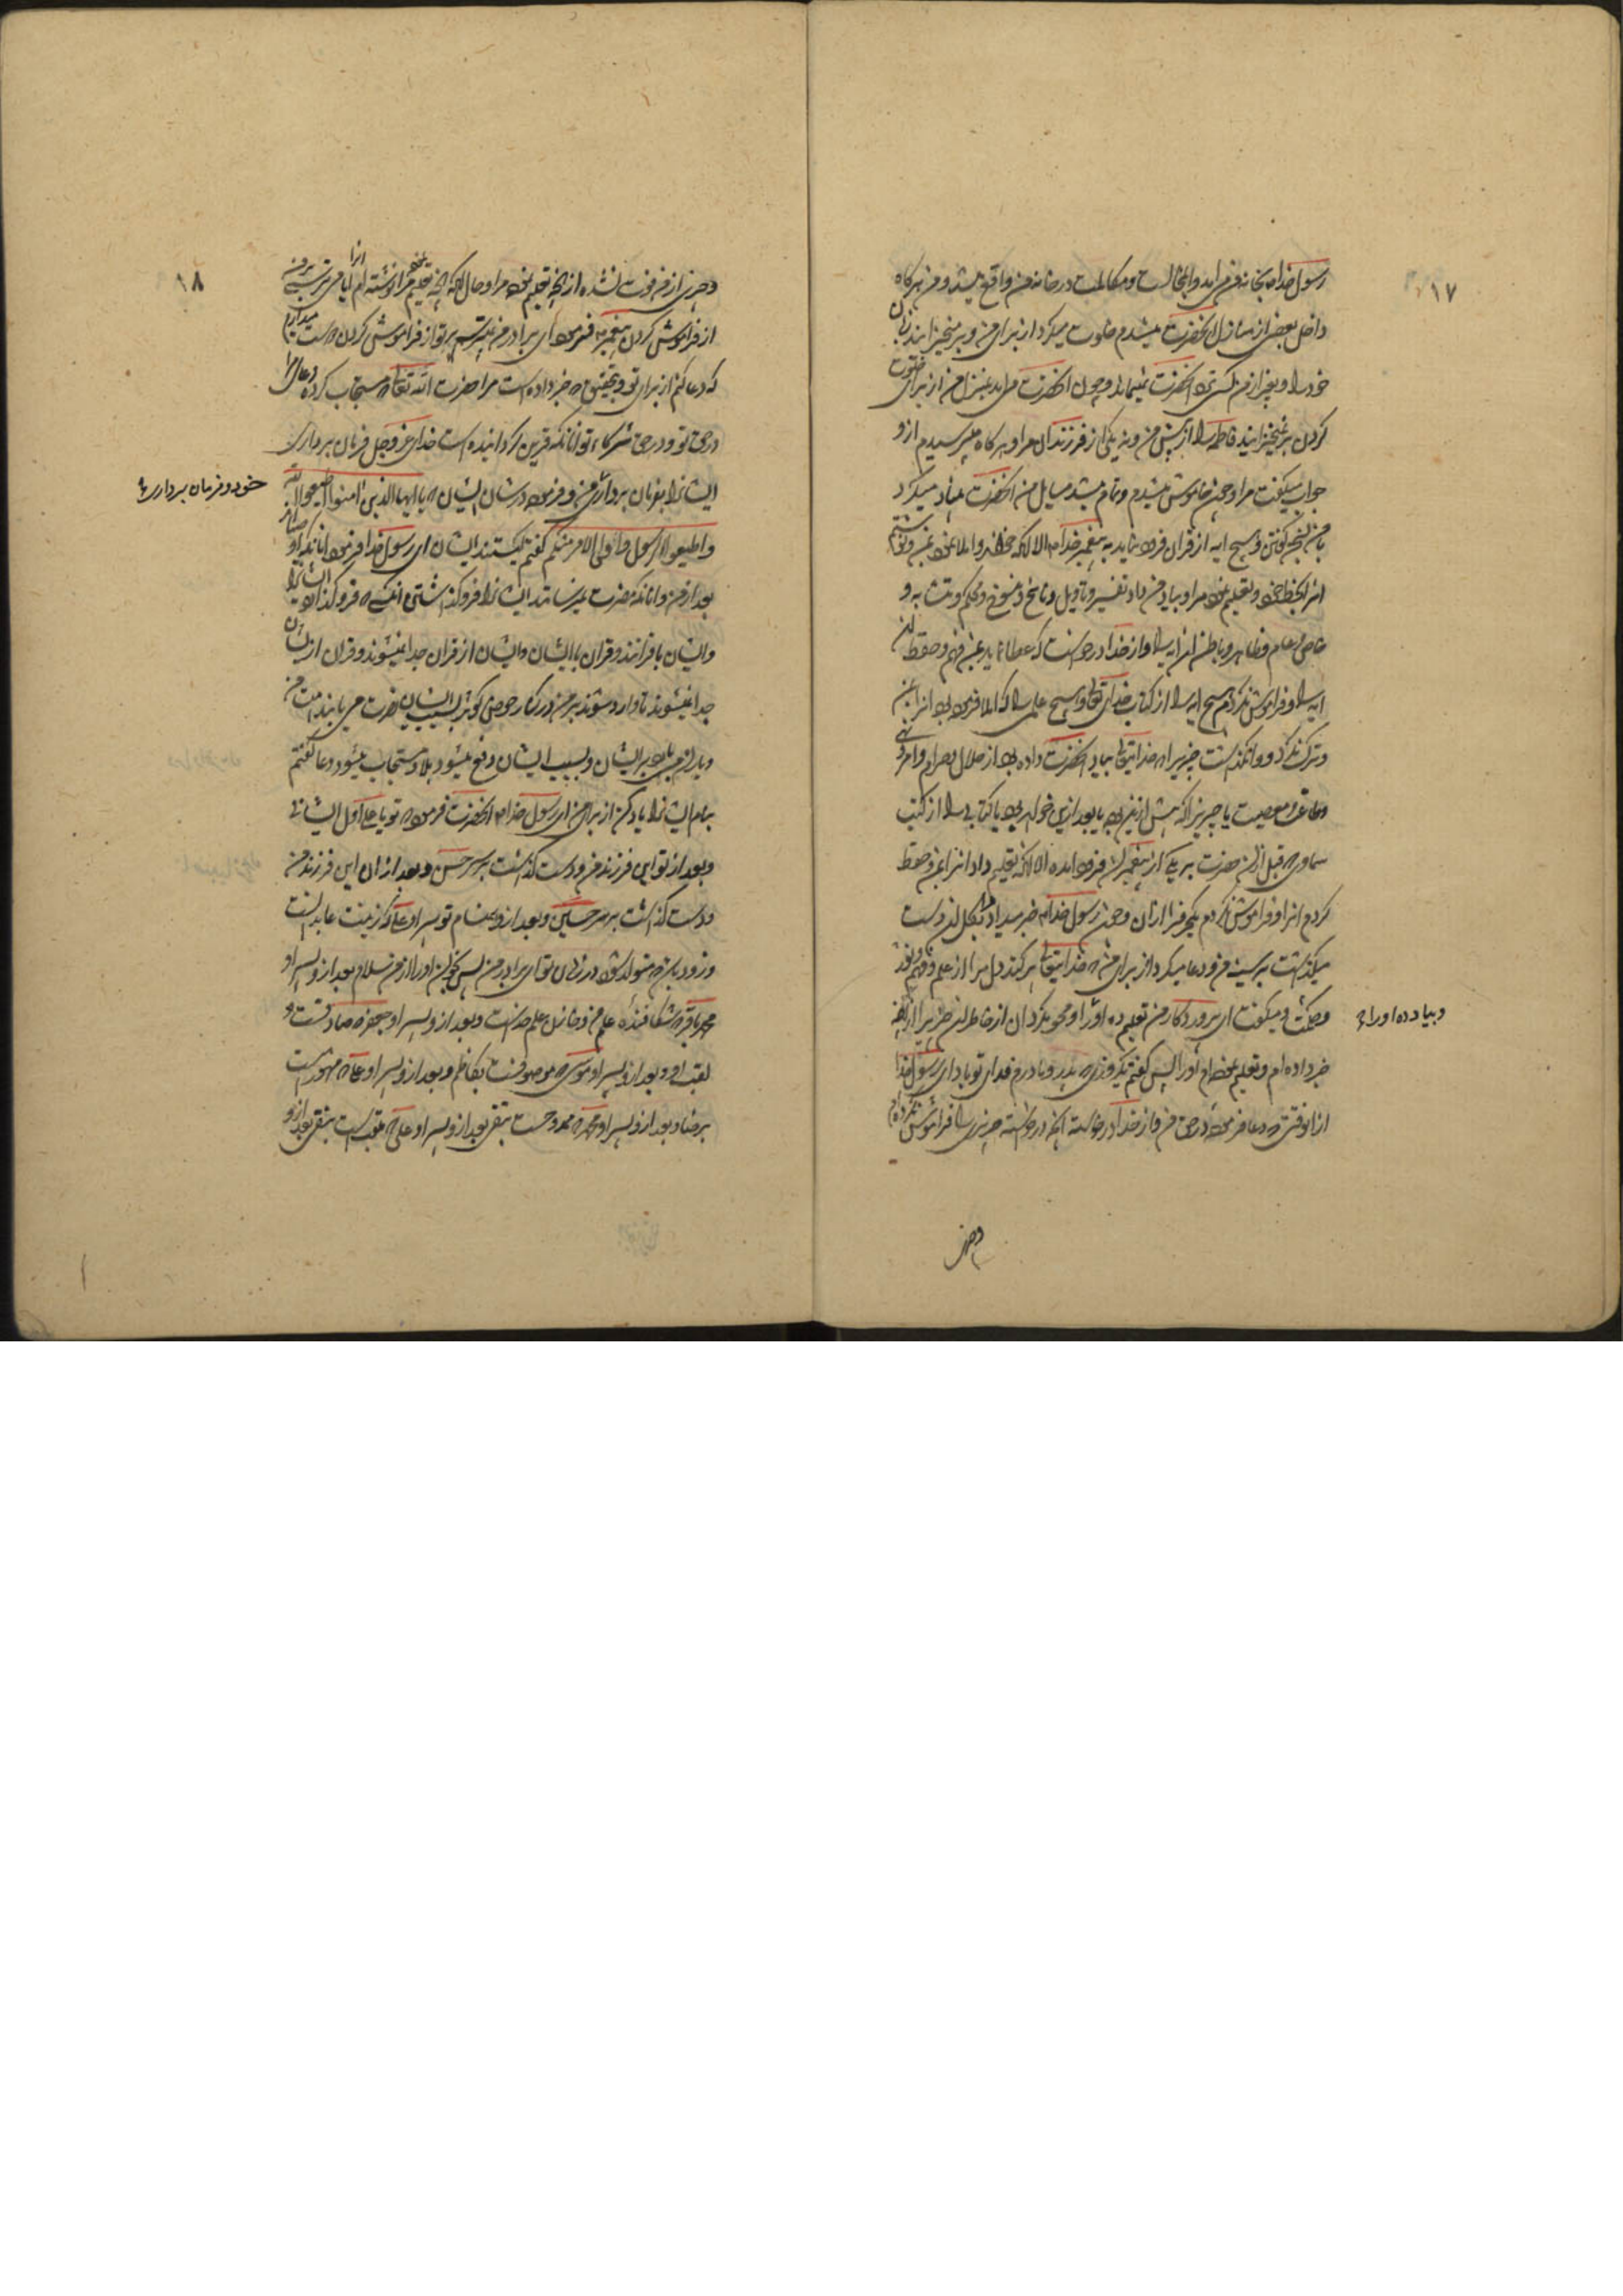 ١٧
رسول خدا بخانه من می‌آید و این مجالست و مکالمت در خانه من واقع میشد و من هر کاه
داخل بعضی از منازل آنحضرت میشدم خلوت میکرد از برای من و بر میخیزانید زنان
خود را و بغیر از من کسی نزد آنحضرت نمیماند و چون آنحضرت می‌آمد بمنزل من از برای خلوت
کردن بر نمیخیزانید فاطمه را از پیش من و نه یکی از فرزندان مرا و هر کاه میپرسیدم ازو
جواب میکفت مرا و چون خاموش میشدم و تمام میشد مسایل من آنحضرت بنیاد میکرد
با من سخن کفتن و هیچ آیه از قرآن فرود نیامد به پیغمبر خدا الا آنکه خواند و املا نمود بمن و نوشتم
آنرا بخط خود و تعلیم نمود مرا و بیاد من داد تفسیر و تاویل و ناسخ و منسوخ و محکم و متشابه و
خاص و عام و ظاهر و باطن آن آیه را و از خدا درخواست که عطا نماید بمن فهم و حفظ آن
آیه را و فراموش نکردم هیچ آیه را از کتاب خدای تعالی و هیچ علمی را که املا فرموده بود آنرا بمن
و ترک نکرد و وانگذاشت چیزیرا که خدایتعالی بیاد آنحضرت داده بود از حلال و حرام و امر و نهی
و طاعت و معصیت یا چیزیرا که پیش ازین بود یا بعد ازین خواهد بود یا کتابی را از کتب
سماوی که قبل از آن حضرت بر یکی از پیغمبران فرود آمده الا آنکه تعلیم داد آنرا بمن و حفظ
کردم آنرا و فراموش نکردم یک حرف از آن و چون رسول خدا خبر میداد مرا بکل آن دست
میکذاشت بر سینه من و دعا میکرد از برای من که خدایتعالی پر کند دل مرا از علم و فهم و نور
و حکمت و میکفت ای پروردکار من تعلیم ده او را و محو مکردان از خاطر آن چیزیرا از آنچه
و بیاد ده او را
خبر داده‌ام و تعلیم نموده‌ام او را پس کفتم یکروزی که پدر و مادرم فدای تو باد ای رسول خدا
از آنوقتی که دعا فرموده در حق من و از خدا درخواسته آنچه درخواسته چیزی را فراموش نکرده‌ام
و چیز
١٨
و چیزی از من فوت نشده از آنچه تعلیم نموده مرا و حال آنکه آنچه تعلیم نموده مرا نوشته‌ام آنرا آیا می‌ترسی بر من
از فراموش کردن پیغمبر فرمود ای برادر من نمیترسم بر تو از فراموش کردن دوست میدارم
که دعا کنم از برای تو و بتحقیق که خبر داده است مرا حضرت الله تعالی که مستجاب کرده دعای مرا
در حق تو و در حق شرکاء تو آنانکه قرین کردانیده است خدای عز و جل فرمان برداری
ایشانرا بفرمان برداری من و فرموده در شان ایشان که یا ایها الذین امنوا اطیعوا الله
خود و فرمان برداری
و اطیعوا الرسول و اولی الامر منکم کفتم کیستند ایشان ای رسول خدا فرمود آنانکه اوصیاء
بعد از من و آنانکه مضرت نمیرساند ایشانرا فرو کذاشتن آنکسی که فرو کذارد ایشانرا
و ایشان با قرآنند و قرآن با ایشان و ایشان از قرآن جدا نمیشوند و قرآن از ایشان
جدا نمیشود تا وارد شوند بر من در کنار حوض کوثر بسبب ایشان نصرت می‌یابند امت من
و باران میبارد بر ایشان و بسبب ایشان دفع میشود بلا و مستجاب میشود دعا کفتم
بنام ایشانرا یاد کن از برای من ای رسول خدا آنحضرت فرمود که تو یا علی اول ایشانی
و بعد از تو این فرزند من و دست کذاشت بر سر حسن و بعد از آن این فرزند من
و دست کذاشت بر سر حسین و بعد ازو همنام تو پسر او علی که زینت عابدانست
و زود باشد که متولد شود در زمان تو ای برادر من پس بخوان او را از من سلام بعد ازو پسر او
محمد باقر که شکافنده علم من و خازن علم خداست و بعد ازو پسر او جعفر که صادقست و
لقب او و بعد ازو پسر او موسی که موصوفست بکاظم و بعد ازو پسر او علی که مشهورست
برضا و بعد ازو پسر او محمد که ممدوحست بتقی بعد ازو پسر او علی که ملقبست بنقی بعد ازو